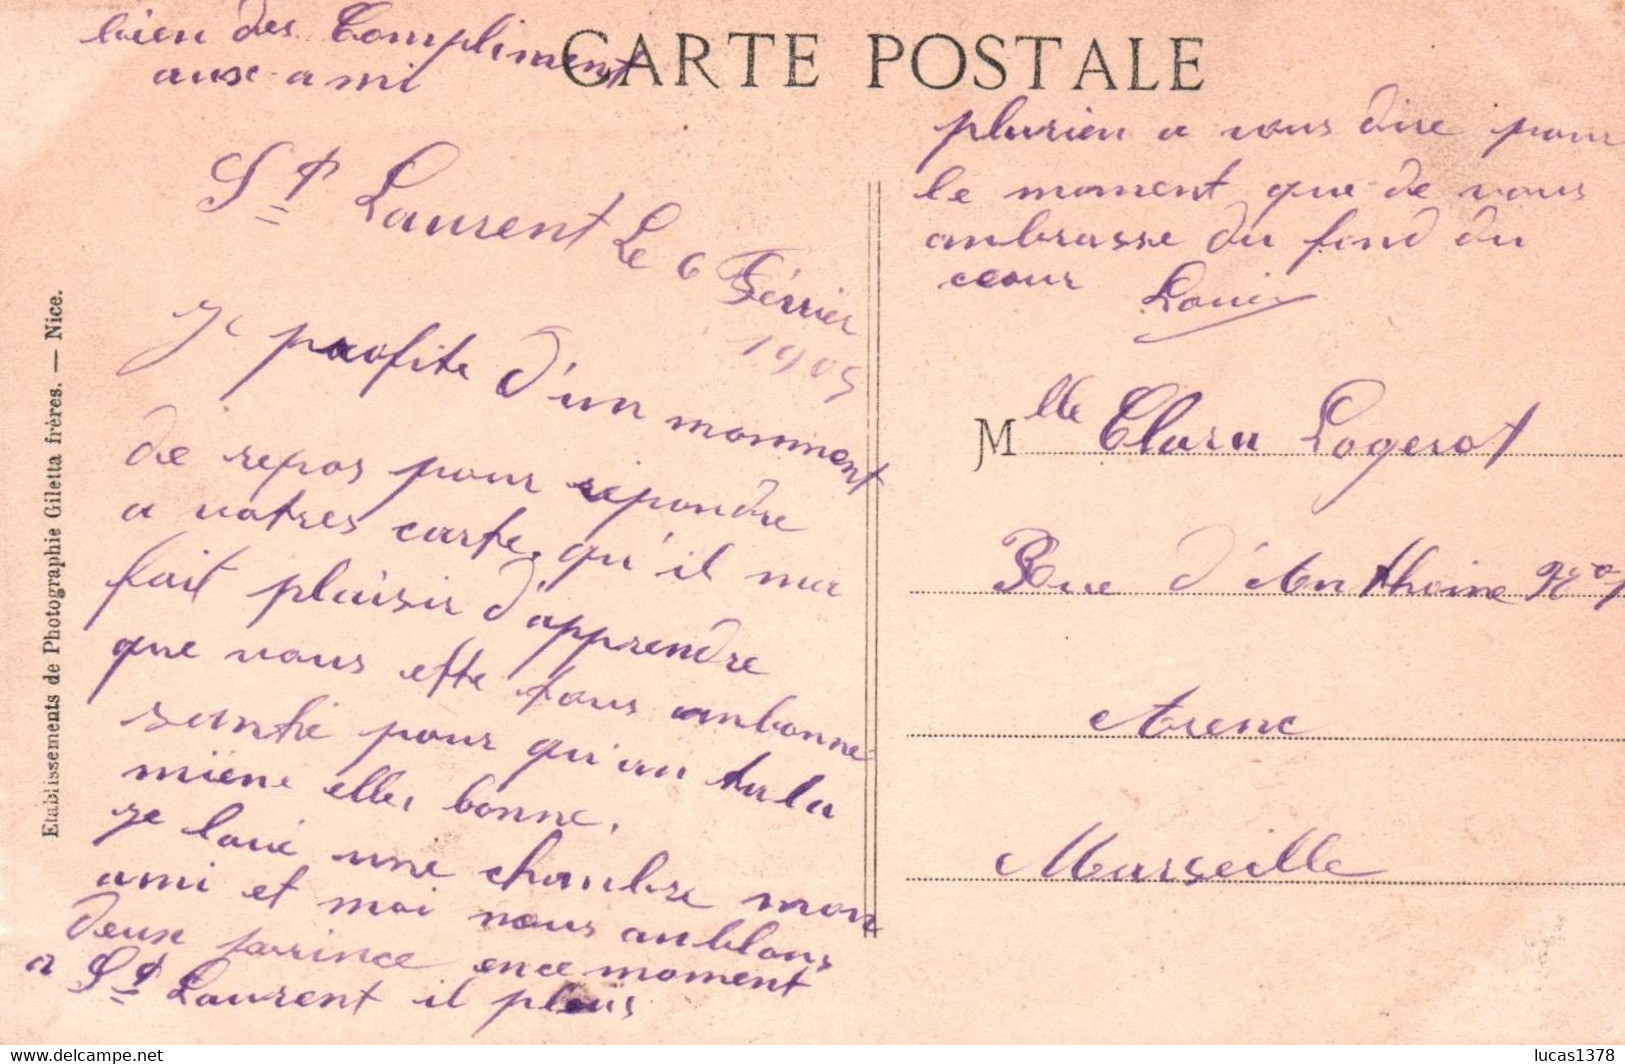 CARTE POSTALE
bien des Compliment
aux ami
St Laurent Le 6 Février
1905
Je profite d'un momment
de repos pour repondre
a votres carte, qu'il ma
fait plaisir d'apprendre
que vous efte tous anbonne
santé pour qu'an tala
miene elles bonne.
je loué une chambre mon
ami et moi nous anblons
deux prince ence moment
a St Laurent il pleus
plurien a vous dire pour
le moment que de vous
anbrasse du fond du
ceour Louis
Mlle Clara Logerot
Rue d'Anthoine No 7
Arenc
Marseille
Etablissements de Photographie Giletta frères. — Nice.
lucas1378